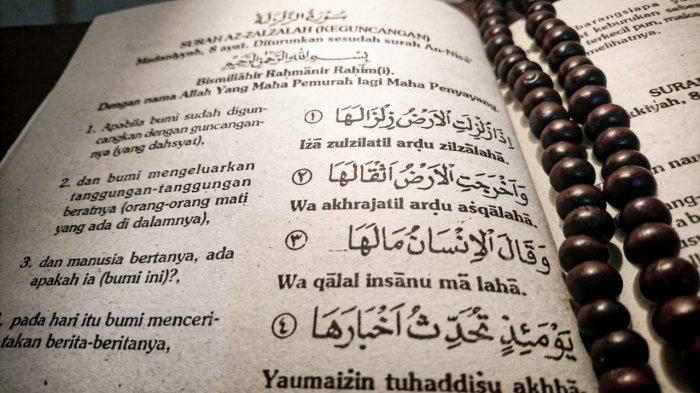 سُوْرَةُ الزَّلْزَلَةِ
SURAH AZ-ZALZALAH (KEGUNCANGAN)
Madaniyyah, 8 ayat. Diturunkan sesudah surah An-Nisā'
بِسْمِ اللهِ الرَّحْمٰنِ الرَّحِيْمِ
Bismillāhir Raḥmānir Raḥīm(i).
Dengan nama Allah Yang Maha Pemurah lagi Maha Penyayang.
1. Apabila bumi sudah digun-
cangkan dengan guncangan-
nya (yang dahsyat),
اِذَا زُلْزِلَتِ الْاَرْضُ زِلْزَالَهَا ١
Iżā zulzilatil arḍu zilzālahā.
2. dan bumi mengeluarkan
tanggungan-tanggungan
beratnya (orang-orang mati
yang ada di dalamnya),
وَاَخْرَجَتِ الْاَرْضُ اَثْقَالَهَا ٢
Wa akhrajatil arḍu aṡqālahā.
3. dan manusia bertanya, ada
apakah ia (bumi ini)?,
وَقَالَ الْاِنْسَانُ مَالَهَا ٣
Wa qālal insānu mā lahā.
pada hari itu bumi menceri-
takan berita-beritanya,
يَوْمَئِذٍ تُحَدِّثُ اَخْبَارَهَا ٤
Yaumaiżin tuḥaddiṡu akhbā
barangsiapa
keburukan
terkecil pun,
melihatnya.
SURA